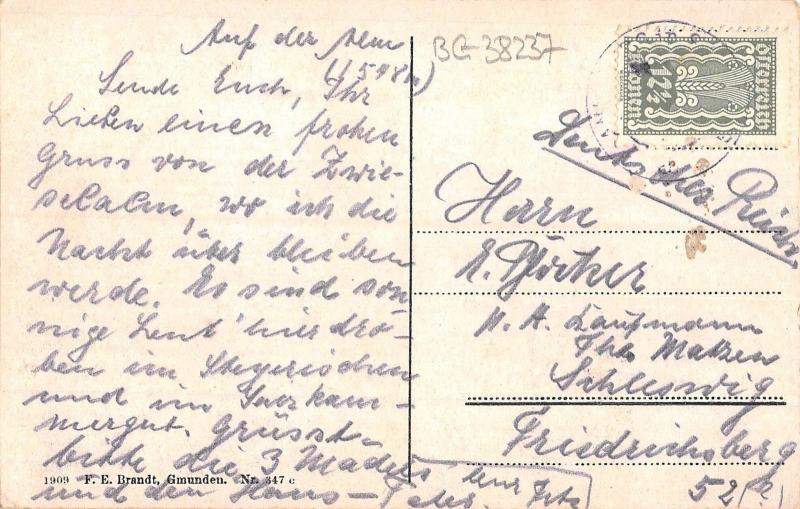 Auf der Alm
(1584m)
Sende Euch, Ihr
Lieben einen frohen
Gruss von der Zwie-
selalm, wo ich die
Nacht über bleiben
werde. Es sind son-
nige Leut' hier dro-
ben im Steyerischen
und im Salzkam-
mergut. Grüsst
bitte die 3 Madels
und den Haus-
Euer Fritz
1909 F. E. Brandt, Gmunden. Nr. 347 c
BG-38237
Österreich
12½
Kronen
Deutsches Reich
Herrn
p. A. Kaufmann
Matzen
Schleswig
Friedrichsberg
52